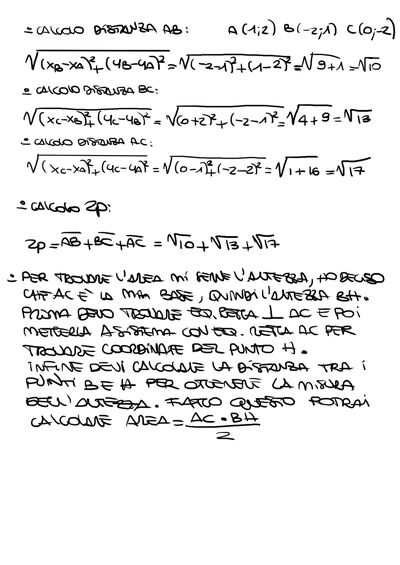 - CALCOLO DISTANZA AB: A(1;2) B(-2;1) C(0;-2)
√(XB-XA)²+(YB-YA)² = √(-2-1)²+(1-2)² = √9+1 = √10
- CALCOLO DISTANZA BC:
√(XC-XB)²+(YC-YB)² = √(0+2)²+(-2-1)² = √4+9 = √13
- CALCOLO DISTANZA AC:
√(XC-XA)²+(YC-YA)² = √(0-1)²+(-2-2)² = √1+16 = √17
- CALCOLO 2P:
2P = AB+BC+AC = √10+√13+√17
- PER TROVARE L'AREA MI SERVE L'ALTEZZA, HO DECISO
CHE AC È LA MIA BASE, QUINDI L'ALTEZZA BH.
PRIMA DEVO TROVARE EQ. RETTA ⊥ AC E POI
METTERLA A SISTEMA CON EQ. RETTA AC PER
TROVARE COORDINATE DEL PUNTO H.
INFINE DEVI CALCOLARE LA DISTANZA TRA I
PUNTI B E H PER OTTENERE LA MISURA
DELL'ALTEZZA. FATTO QUESTO POTRAI
CALCOLARE AREA = AC • BH
2